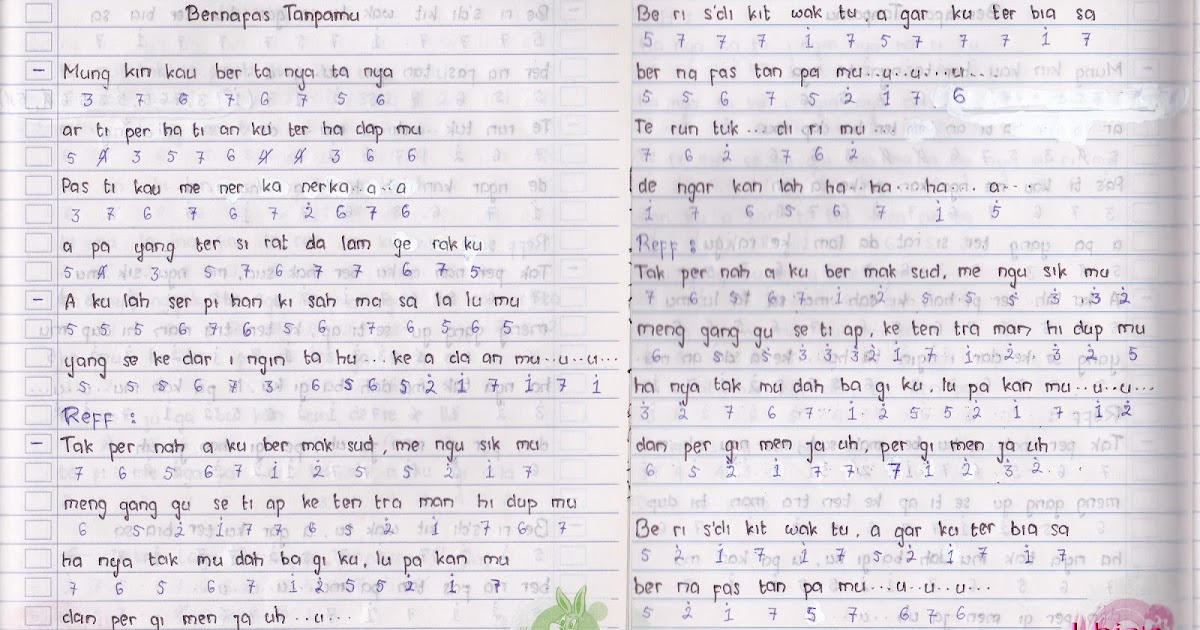 Bernapas Tanpamu
- Mung kin kau ber ta nya ta nya
3 7 6 7 6 7 5 6
ar ti per ha ti an ku ter ha dap mu
5 4 3 5 7 6 4 4 3 6 6
Pas ti kau me ner ka nerka..a..a
3 7 6 7 6 7 2̇ 6 7 6
a pa yang ter si rat da lam ge rak ku
5 4 3 5 7 6 7 7 6 7 5
- A ku lah ser pi han ki sah ma sa la lu mu
5 5 5 6 7 6 5 6 7 6 5 6 5
yang se ke dar i ngin ta hu... ke a da an mu..u..u...
5 5 5 6 7 3 6 5 6 5 2̇ 1̇ 7 1̇ 7 1
Reff :
- Tak per nah a ku ber mak sud, me ngu sik mu
7 6 5 6 7 1̇ 2̇ 5 5 2̇ 1̇ 7
meng gang gu se ti ap ke ten tra man hi dup mu
6 5 2̇ 1̇ 7 7 6 5 2̇ 1̇ 7 6 7
ha nya tak mu dah ba gi ku, lu pa kan mu
7 6 5 6 7 1̇ 2̇ 5 5 2̇ 1̇ 7
dan per gi men ja uh ..u...
Be ri s'di kit wak tu, a gar ku ter bia sa
5 7 7 7 1̇ 7 5 7 7 7 1̇ 7
ber na fas tan pa mu...u..u...u...
5 5 6 7 5 2̇ 1̇ 7 6
Te run tuk ... di ri mu ...
7 6 2̇ 7 6 2̇
de ngar kan lah ha.. ha.. ha.. a...
1̇ 7 6 5 6 7 1̇ 5̇
Reff :
Tak per nah a ku ber mak sud, me ngu sik mu
7 6 5 6 7 1̇ 2̇ 5 5 5 3̇ 3̇ 2̇
meng gang gu se ti ap, ke ten tra man hi dup mu
6 5 5 3̇ 3̇ 3̇ 2̇ 1̇ 7 1̇ 2̇ 3̇ 2̇ 5
ha nya tak mu dah ba gi ku, lu pa kan mu..u..u...
3̇ 2̇ 7 6 7 1̇ 2̇ 5 5 2̇ 1̇ 7 1̇ 2̇
dan per gi men ja uh, per gi men ja uh
6 5 2̇ 1̇ 7 7 7 1̇ 2̇ 3̇ 2̇
Be ri s'di kit wak tu, a gar ku ter bia sa
5 2̇ 1̇ 7 1̇ 7 5 2̇ 1̇ 7 1̇ 7
ber na fas tan pa mu...u..u..u...
5 2̇ 1̇ 7 5 7 6 7 6